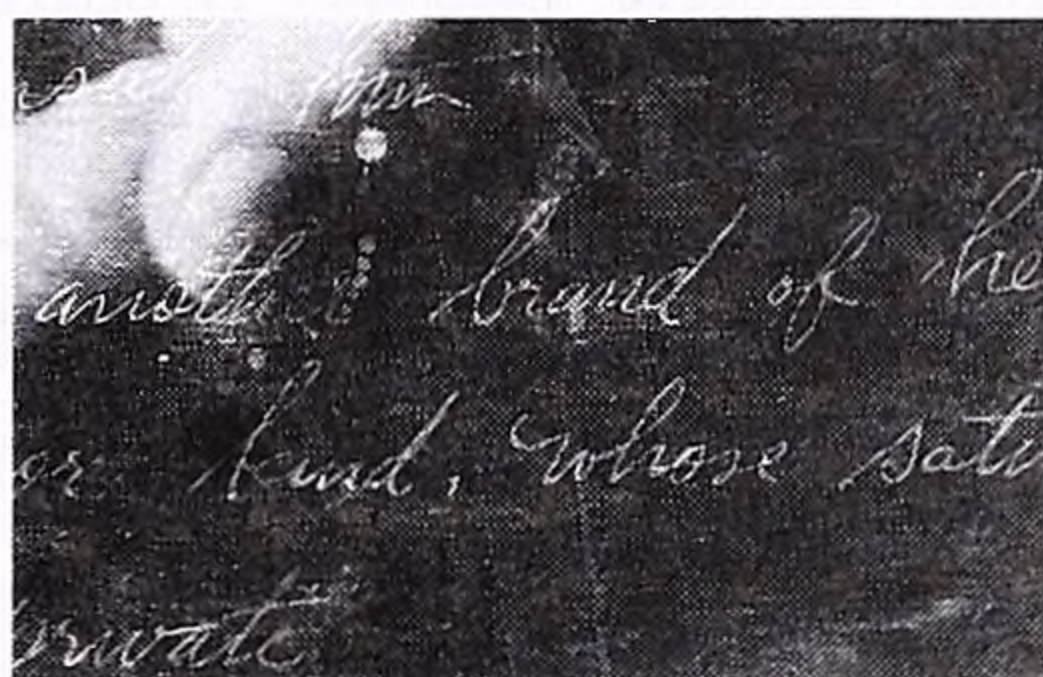 another brand of he
or kind, whose sati
private